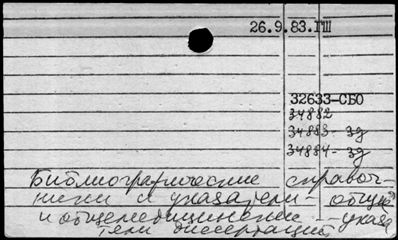 26.9.83.ГШ
32633-СБО
34882
34883-зд
34884-зд
Библиографические справоч-
ники и указатели - общие
и общемедицинские - указа
тели диссертаций